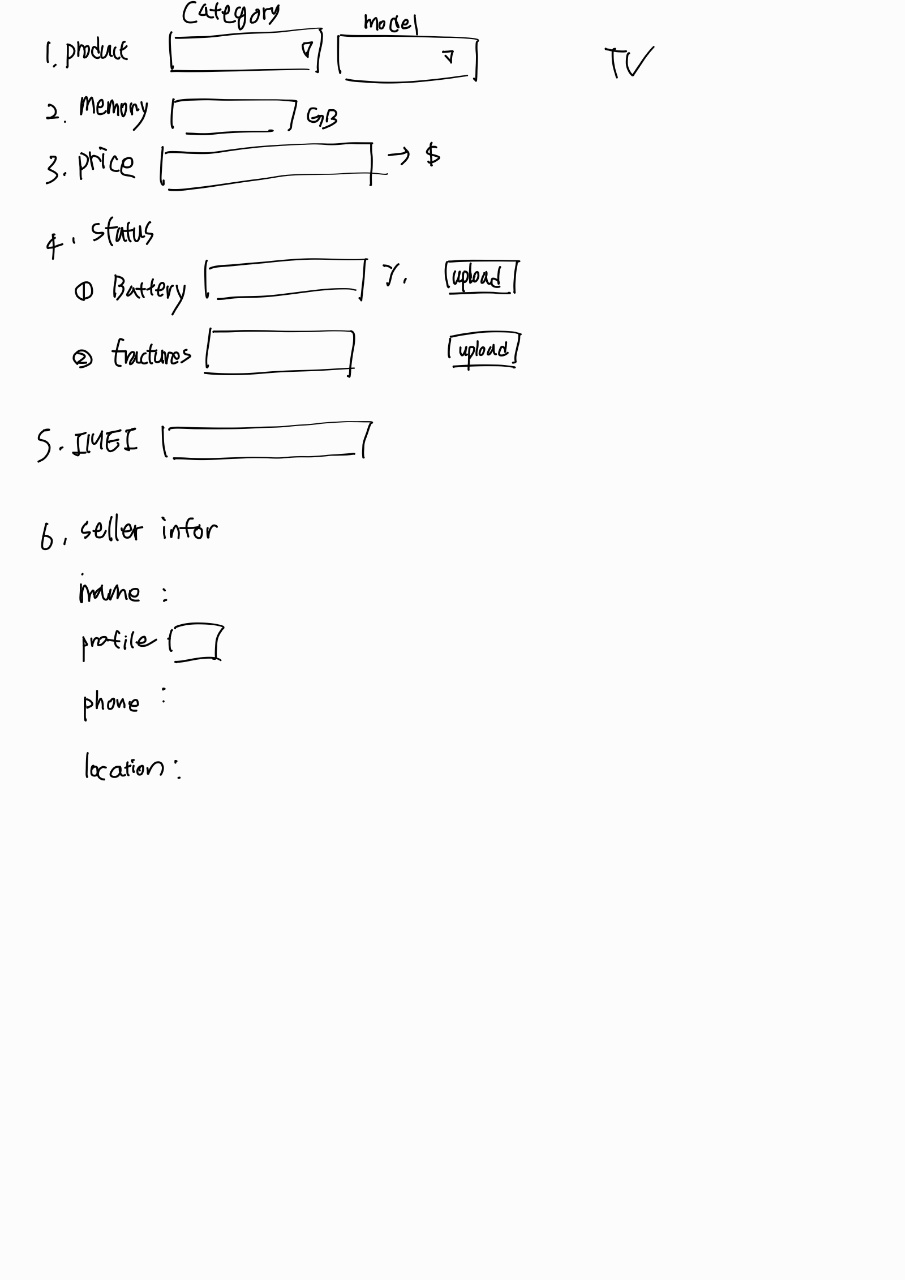 Category model
1. product TV
2. Memory GB
3. price → $
4. status
① Battery %. upload
② fractures upload
5. IMEI
6. seller infor
name :
profile
phone :
location :